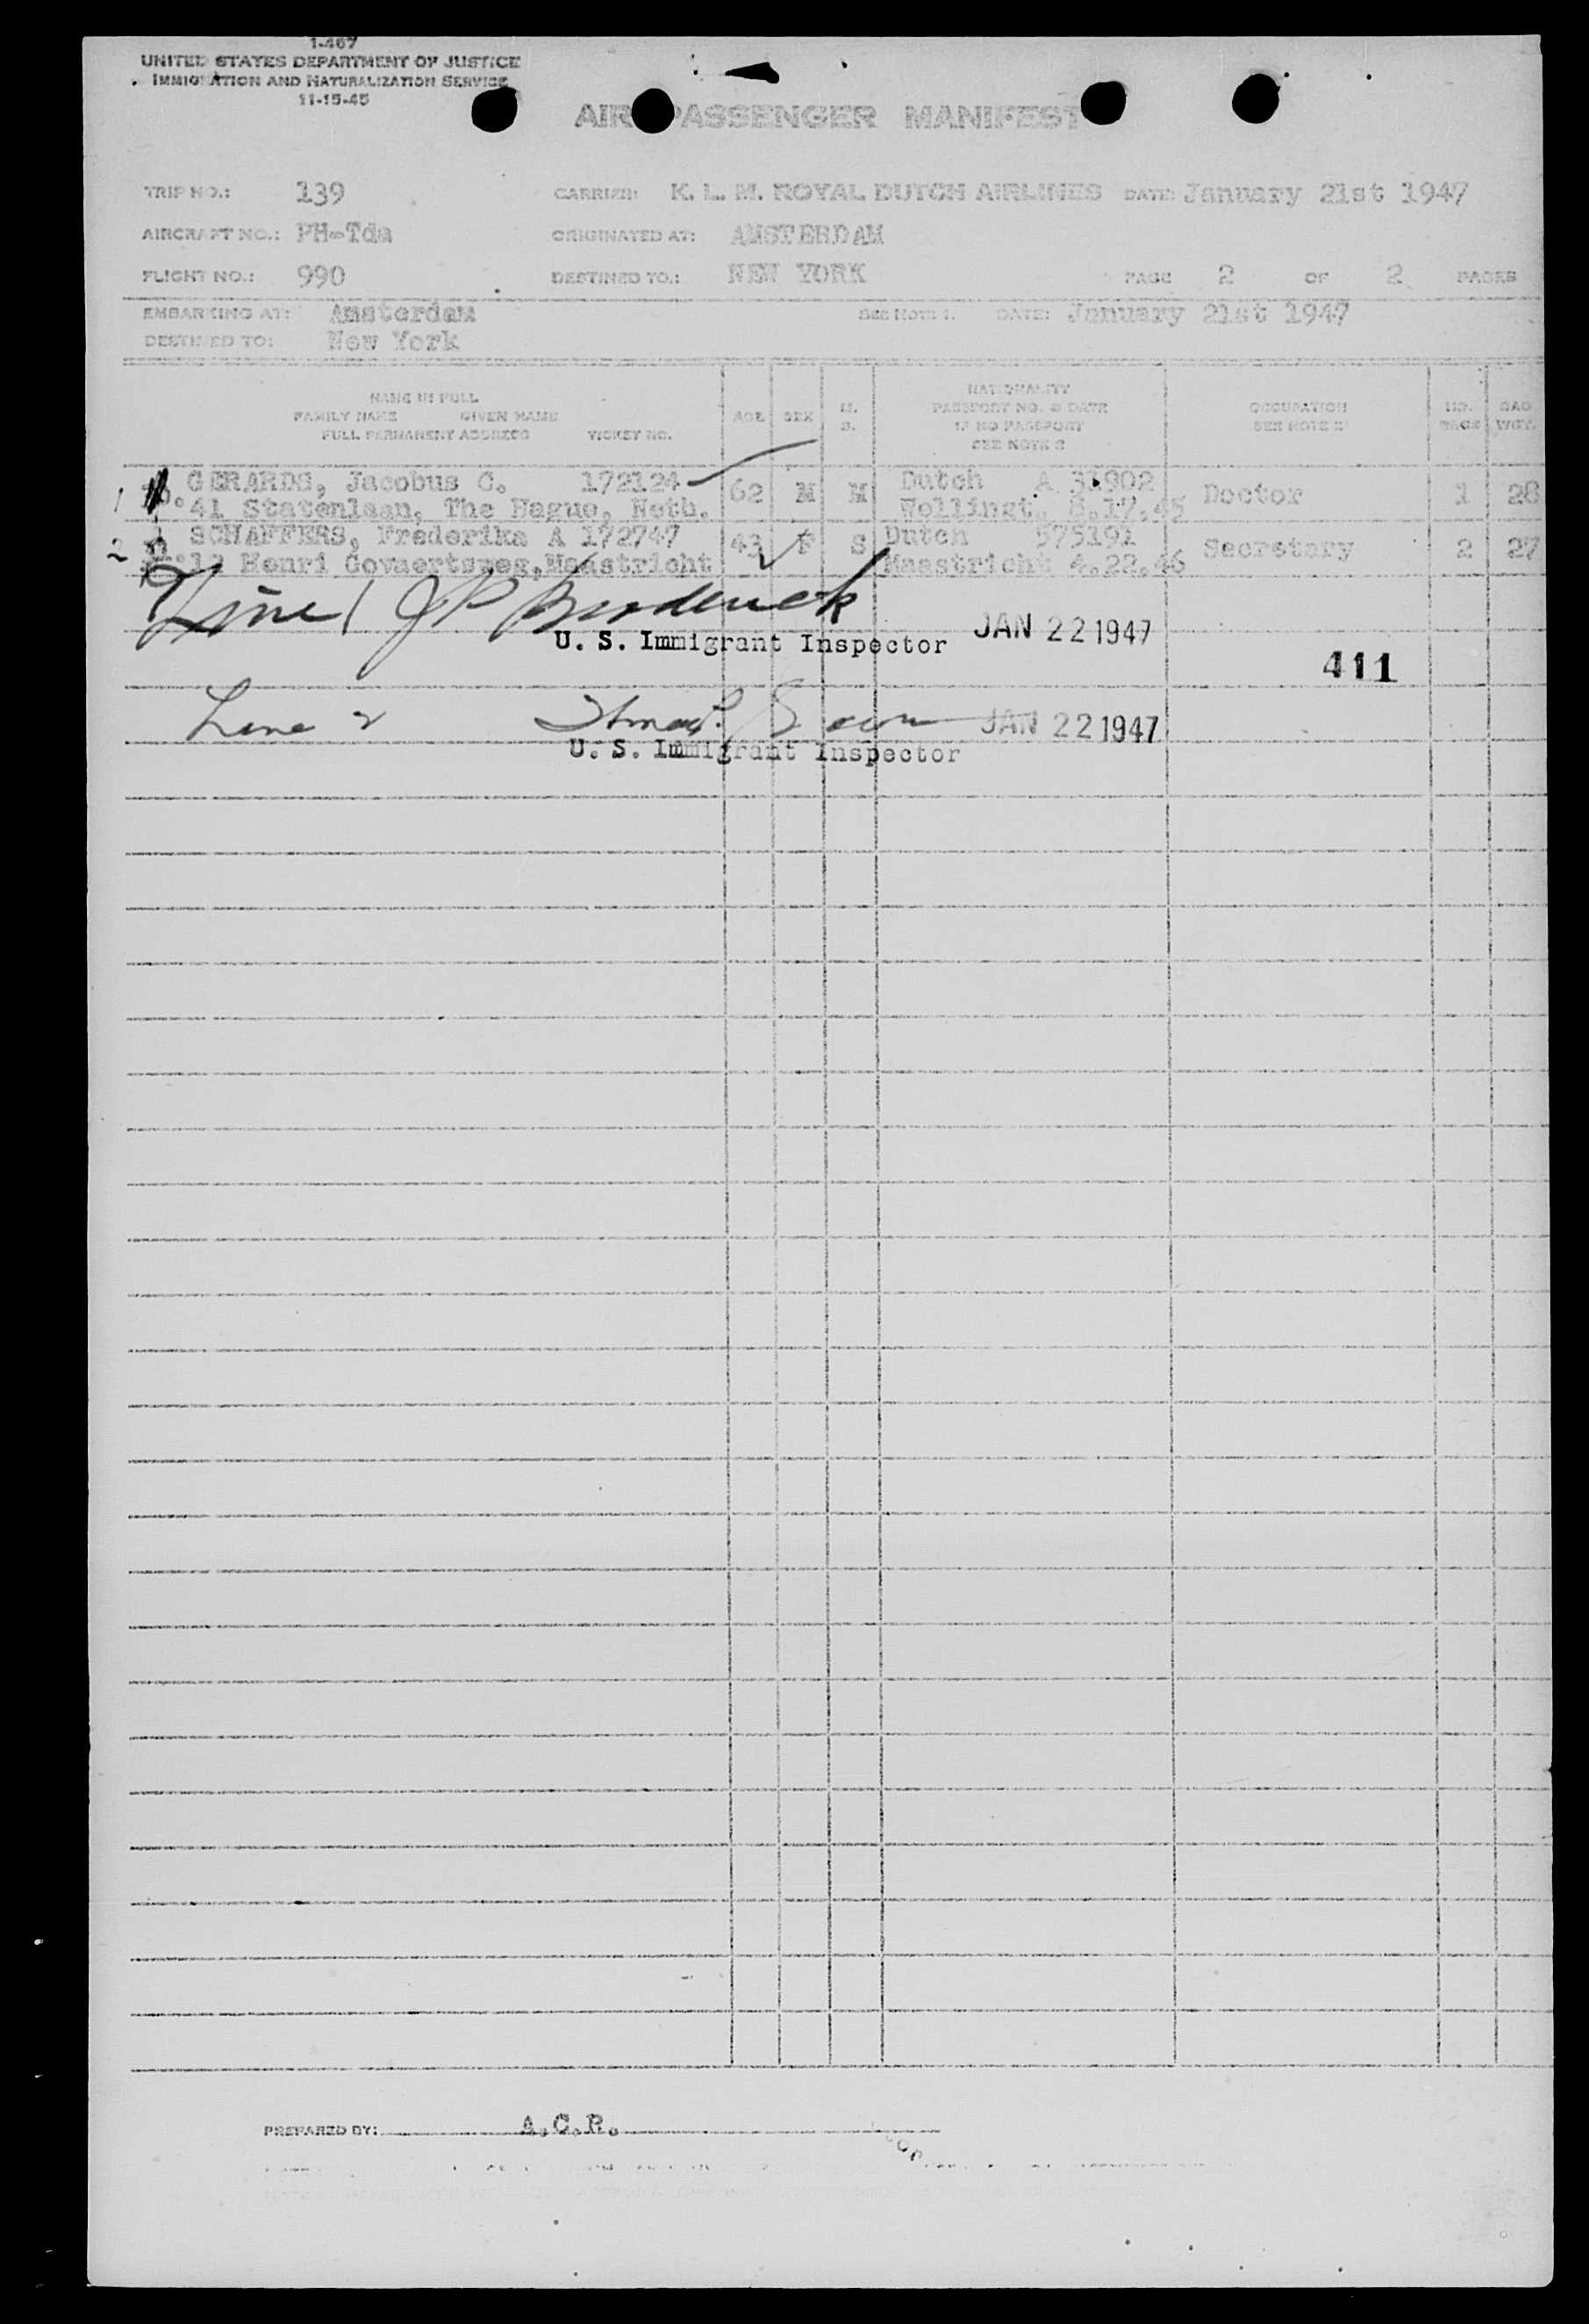 1-467
UNITED STATES DEPARTMENT OF JUSTICE
IMMIGRATION AND NATURALIZATION SERVICE
11-15-45
AIR PASSENGER MANIFEST
TRIP NO.: 139 CARRIER: K. L. M. ROYAL DUTCH AIRLINES DATE: January 21st 1947
AIRCRAFT NO.: PH-Tda ORIGINATED AT: AMSTERDAM
FLIGHT NO.: 990 DESTINED TO.: NEW YORK PAGE 2 OF 2 PAGES
EMBARKING AT: Amsterdam SEE NOTE 1. DATE: January 21st 1947
DESTINED TO: New York
NAME IN FULL
FAMILY NAME GIVEN NAME
FULL PERMANENT ADDRESS TICKET NO.
AGE SEX M. S.
NATIONALITY
PASSPORT NO. & DATE
IF NO PASSPORT
SEE NOTE 2
OCCUPATION
SEE NOTE 2
NO. BAGS
BAG WGT.
1 GERARDS, Jacobus C. 172124 62 M M Dutch A 31902 Doctor 1 28
41 Statenlaan, The Hague, Neth. Wellingt. 8.17.45
2 SCHAFFERS, Frederika A 172747 43 F S Dutch 575191 Secretary 2 27
Henri Govaertsweg, Maastricht Maastricht 4.22.46
Line 1 JP Broderick
U. S. Immigrant Inspector JAN 22 1947
411
Line 2 JAN 22 1947
U. S. Immigrant Inspector
PREPARED BY: A.C.R.